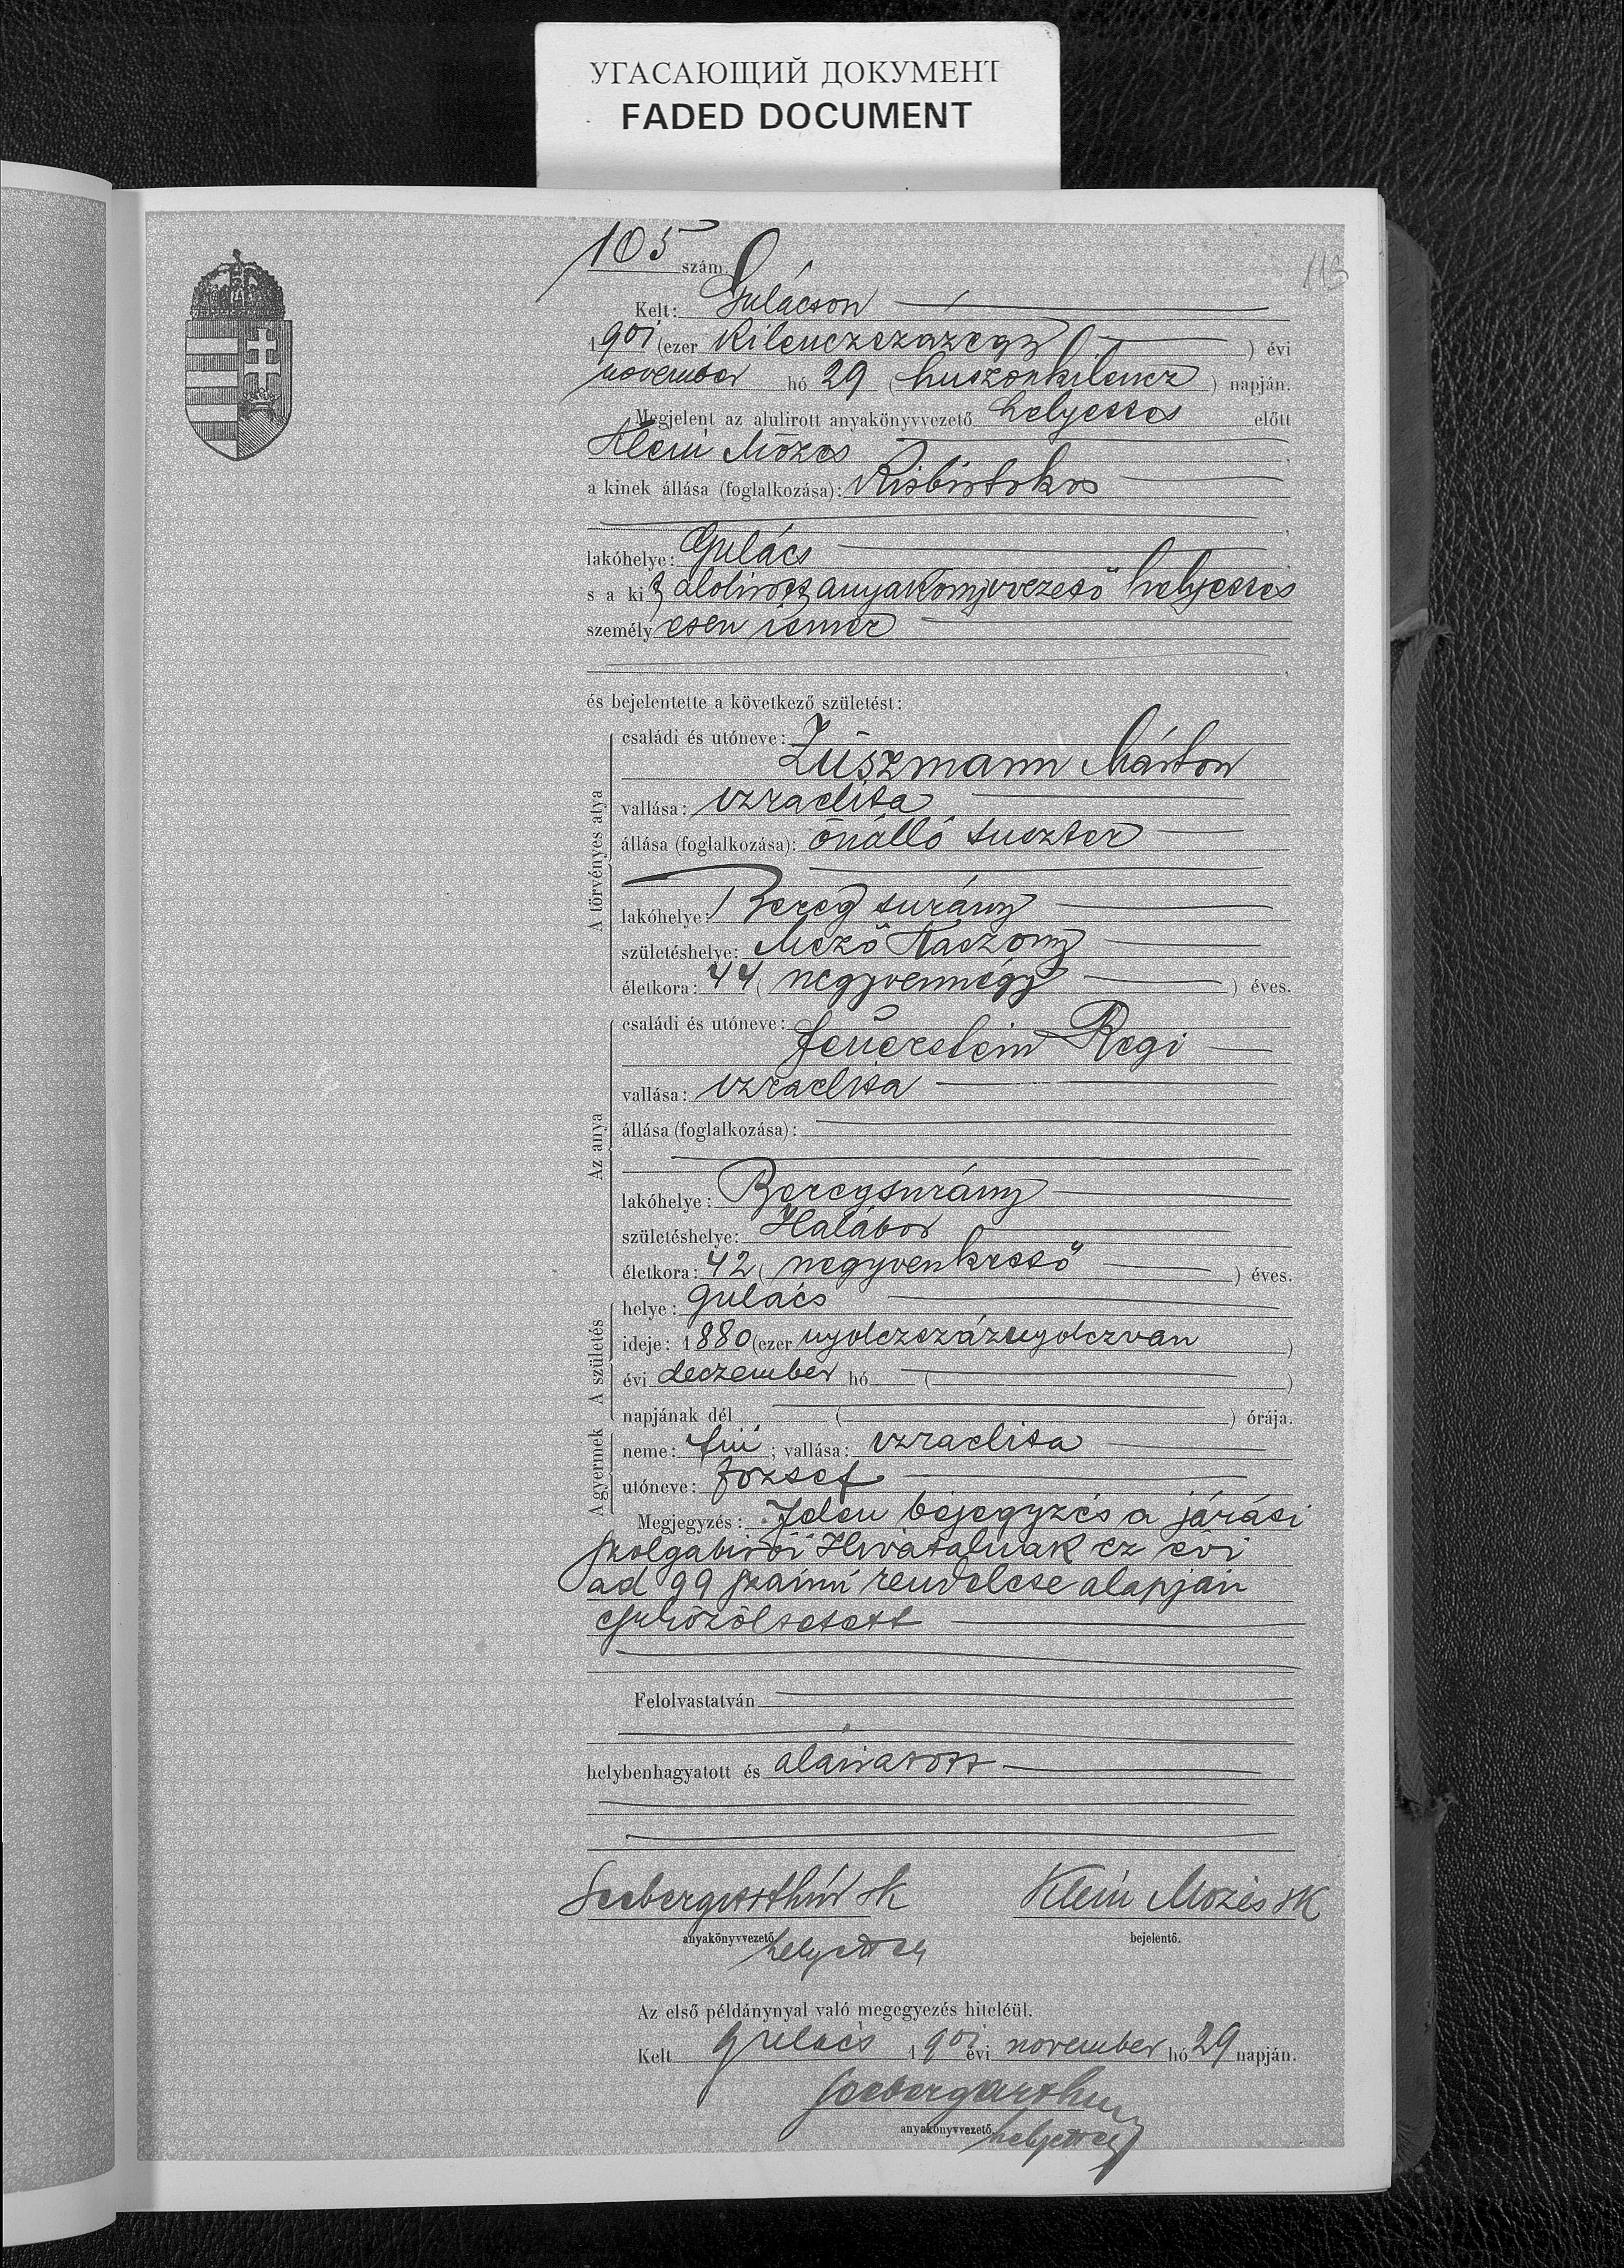 УГАСАЮЩИЙ ДОКУМЕНТ
FADED DOCUMENT
105 szám.
113
Kelt: Gulácson
1901 (ezer kilenczszázegy) évi
november hó 29 (huszonkilencz) napján.
Megjelent az alulirott anyakönyvvezető helyettes előtt
Klein Mózes,
a kinek állása (foglalkozása): Kisbirtokos
lakóhelye: Gulács,
s a kit alolirott anyakönyvvezető helyettes
személyesen ismer
és bejelentette a következő születést:
A törvényes atya
családi és utóneve:
Züszmann Márton
vallása: izraelita
állása (foglalkozása): önálló suszter
lakóhelye: Bereg surány
születéshelye: Mező Kaszony
életkora: 44 (negyvennégy) éves.
Az anya
családi és utóneve:
Feuerstein Regi
vallása: izraelita
állása (foglalkozása):
lakóhelye: Beregsurány
születéshelye: Halábor
életkora: 42 (negyvenkettő) éves.
A születés
helye: Gulács
ideje: 1880 (ezer nyolczszáznyolczvan)
évi deczember hó ( )
napjának dél ( ) órája.
A gyermek
neme: fiú; vallása: izraelita
utóneve: József
Megjegyzés: Jelen bejegyzés a járási
szolgabirói Hivatalnak ez évi
ad 99 számú rendelese alapján
eszközöltetett
Felolvastatván
helybenhagyatott és aláiratott
Seeberg Arthúr sk
Klein Mozés sk
anyakönyvvezető helyettes
bejelentő.
Az első példánynyal való megegyezés hiteléül.
Kelt Gulács 1901 évi november hó 29 napján.
Seeberg Arthur
anyakönyvvezető helyettes